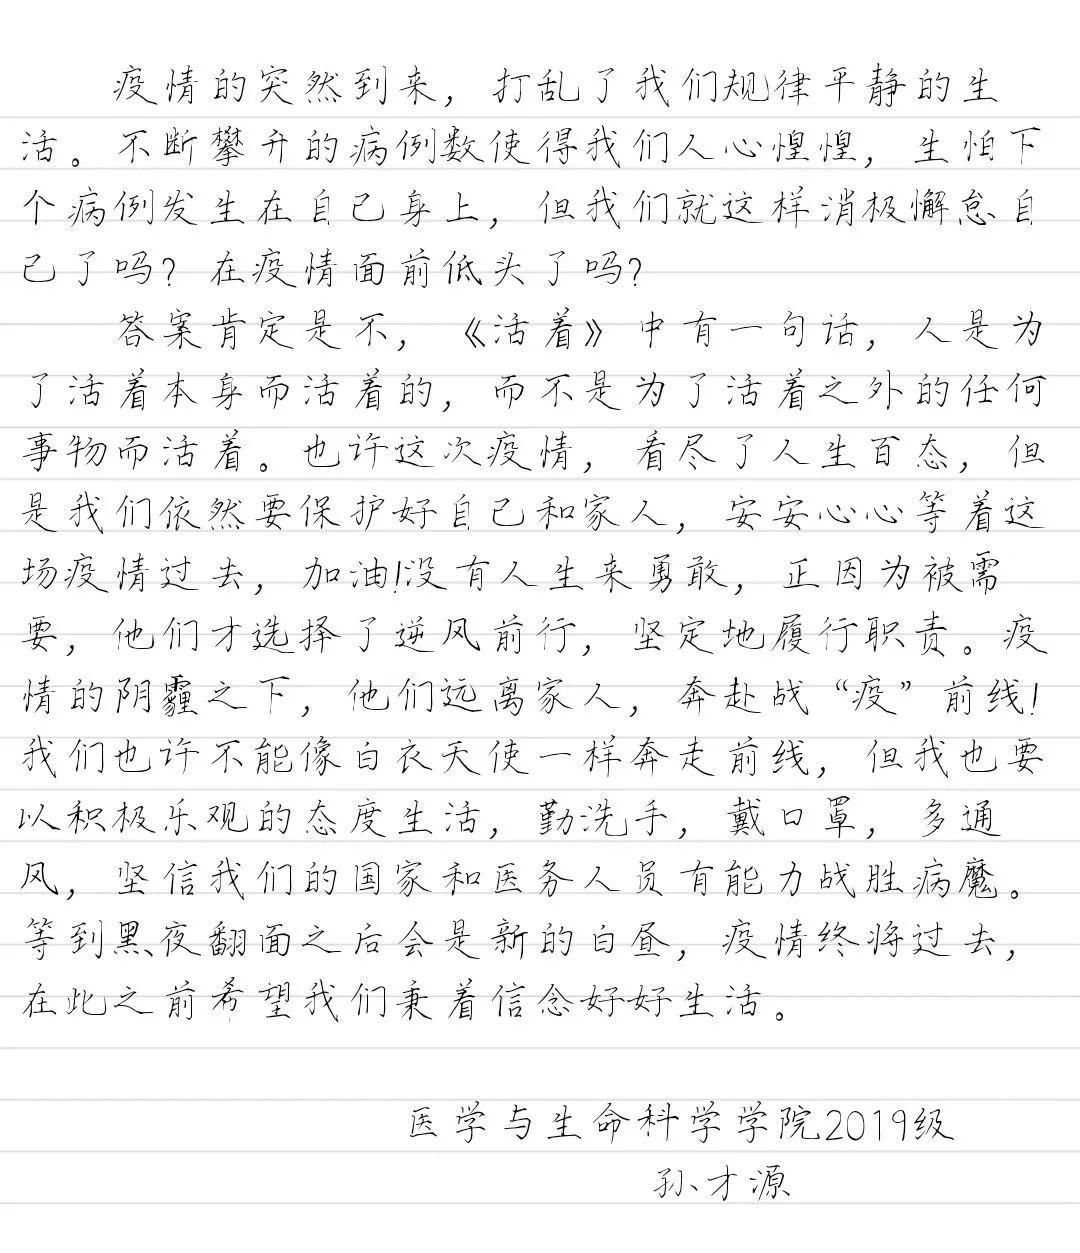 疫情的突然到来，打乱了我们规律平静的生
活。不断攀升的病例数使得我们人心惶惶，生怕下
个病例发生在自己身上，但我们就这样消极懈怠自
己了吗？在疫情面前低头了吗？
答案肯定是不，《活着》中有一句话，人是为
了活着本身而活着的，而不是为了活着之外的任何
事物而活着。也许这次疫情，看尽了人生百态，但
是我们依然要保护好自己和家人，安安心心等着这
场疫情过去，加油！没有人生来勇敢，正因为被需
要，他们才选择了逆风前行，坚定地履行职责。疫
情的阴霾之下，他们远离家人，奔赴战“疫”前线！
我们也许不能像白衣天使一样奔走前线，但我也要
以积极乐观的态度生活，勤洗手，戴口罩，多通
风，坚信我们的国家和医务人员有能力战胜病魔。
等到黑夜翻面之后会是新的白昼，疫情终将过去，
在此之前希望我们秉着信念好好生活。
医学与生命科学学院2019级
孙才源